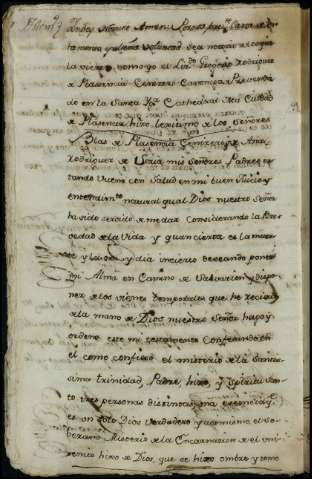 En el nombre Amen. Sepan quantos esta Carta de tes
tamento y ultima voluntad vieren
vieren como yo el Licdo Rodriguez
de Plasencia Canonigo Prevenda
do en la Santa Yga Cathedral desta Ciudad
de Plasencia hixo legitimo de los señores
Blas de Plasencia y de Ana
Rodriguez de mis señores Padres es
tando Vueno con Salud en mi buen Juicio y
entendimto natural qual Dios nuestro Señor
ha sido servido de me dar Considerando la bre
vedad de la Vida y quan cierta es la muer
te y la ora y dia incierto deseando poner
mi Alma en Camino de Salvacion y dispo
ner de los vienes temporales que he recivido
de la mano de Dios nuestro Señor hago y
ordeno este mi testamento Confesando en
el como confieso el misterio de la Santis
sima trinidad, Padre, hixo, y Spiritu San
to tres personas distintas y una esencia q
es un solo Dios verdadero y asimismo el so
berano Misterio de la Encarnacion de el uni
genito hixo de Dios, que se hizo ombre y tomo